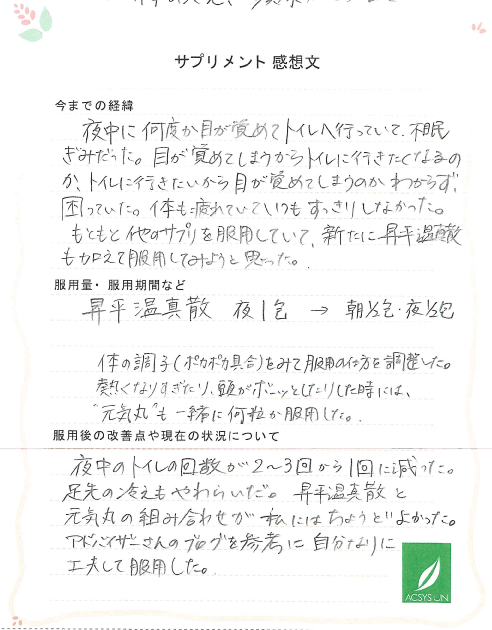 サプリメント 感想文
今までの経緯
夜中に何度か目が覚めてトイレへ行っていて、不眠
ぎみだった。目が覚めてしまうからトイレに行きたくなるの
か、トイレに行きたいから目が覚めてしまうのかわからず、
困っていた。体も疲れていていつもすっきりしなかった。
もともと他のサプリを服用していて、新たに昇平温真散
も加えて服用してみようと思った。
服用量・服用期間など
昇平温真散 夜1包 → 朝½包・夜½包
体の調子(ポカポカ具合)をみて服用の仕方を調整した。
熱くなりすぎたり、頭がボーッとしたりした時には、
"元気丸"も一緒に何粒か服用した。
服用後の改善点や現在の状況について
夜中のトイレの回数が2〜3回から1回に減った。
足先の冷えもやわらいだ。昇平温真散と
元気丸の組み合わせが私にはちょうどよかった。
アドバイザーさんのブログを参考に自分なりに
工夫して服用した。
ACSYS UN